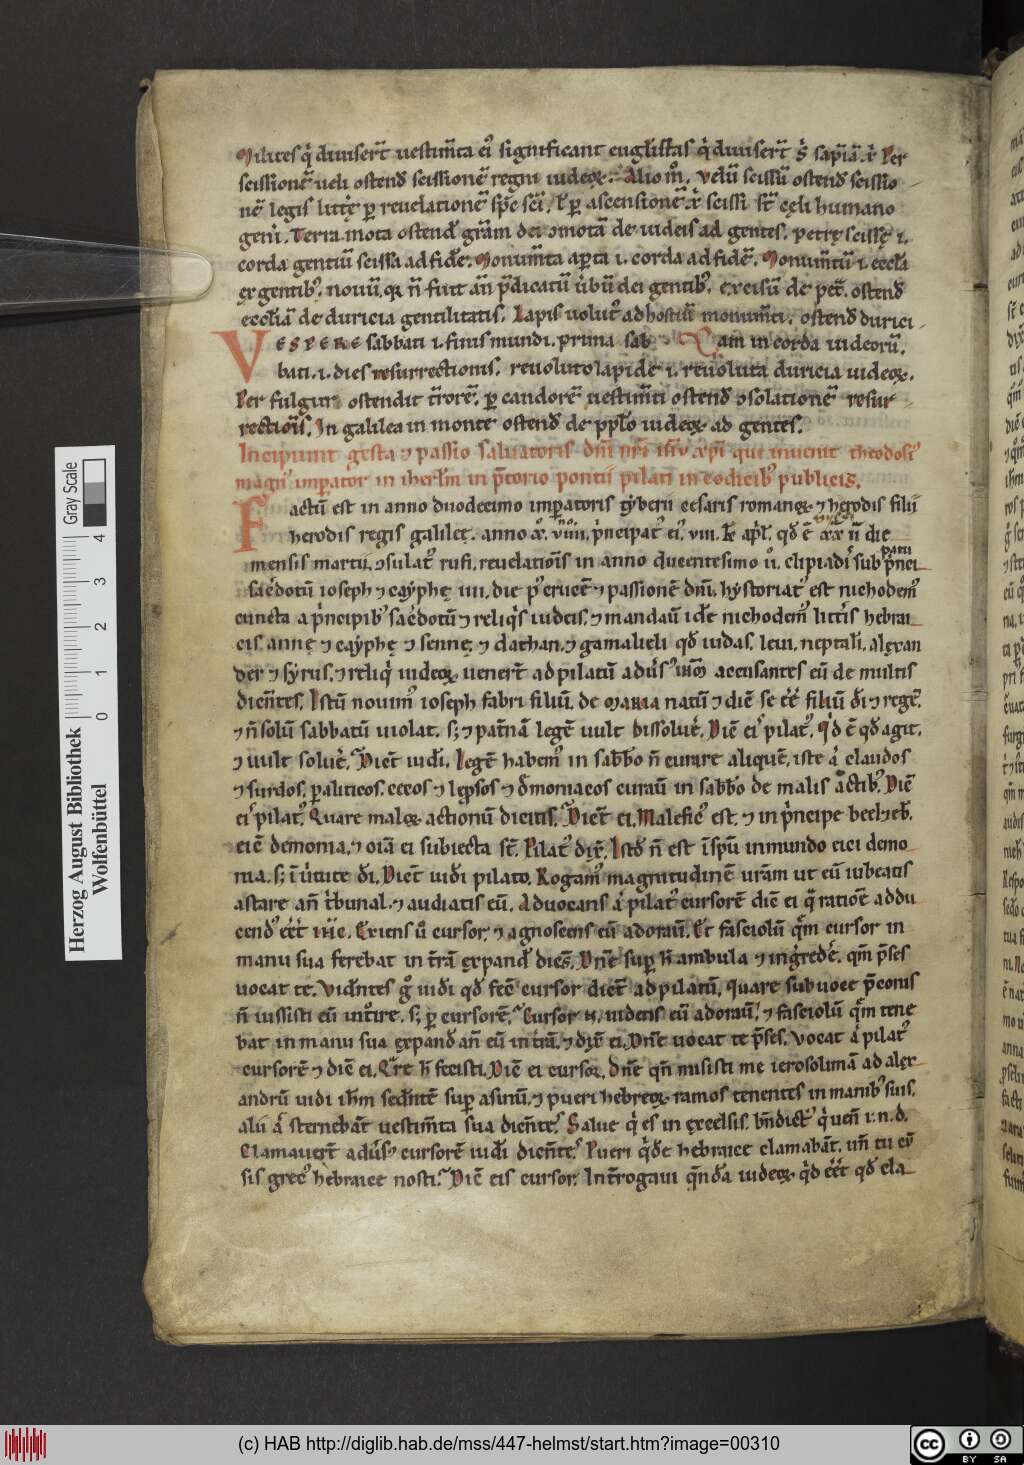 Milites q̇ diuiserт̄ uestim̄ta eiꝰ significant euḡlistas q̇ diuiserт̄ s̄ sap̄iā. ẋ Per
scissionē ueli ostend̄ scissionē regni iudeoꝝ. Alio m̊. Velū scissū ostend̄ scissio-
nē legis littę̇ ꝑ reuelationē sp̄c sc̄i. ł ꝑ ascensionē ẋ scissi st̄ cęli humano
geni̇. Terra mota ostend̄ gr̄am dei ꝯmotā de iudeis ad gentes. petrę scissę .i.
corda gentiū scissa ad fidē. Monum̄ta aꝑta .i. corda ad fidē. Monum̄tū .i. ecclā
ex gentibꝰ. nouū. qꝛ n̄ fuit an̄ p̄dicatū ūbū dei gentibꝰ. excisū de pet̄. ostend̄
ecclīā de duricia gentilitatis. Lapis uolutꝰ ad hostiū monum̄ti. ostend̄ durici-
VESPERE sabbati .i. finis mundi. prima sab- am in corda iudeorū.
bati .i. dies resurrectionis. reuoluto lapide .i. reuoluta duricia iudeoꝝ.
Per fulgur ostendit t̄rorē. ꝑ candorē uestim̄ti ostend̄ ꝯsolationē resur-
rectiōis. In galilea in monte ostend̄ de ppło iudeoꝝ ad gentes.
Incipiunt gesta ⁊ passio saluatoris dn̄i nr̄i ih̄u xp̄i que inuenit theodosiꝰ
magnꝰ imꝑator in iherl̄m in p̄torio pontii pilati in codicibꝰ publicis.
Factū est in anno duodecimo imꝑatoris tyberii cesaris romanoꝝ ⁊ herodis filii
herodis regis galileę. anno xͦ. viiii. ṗncipatꝰ eiꝰ. viii. kł apł. qd̄ ē xx n̄ die
mensis martii. ꝯsulatꝰ rufi. reuelatiōis in anno ducentesimo ii. clipiadi sub ṗnci-patu
sac̄dotū ioseph ⁊ cayphę iiii. die pꝰ crucē ⁊ passionē dn̄i. hystoriatꝰ est nichodemꝰ
cuncta a ṗncipibꝰ sac̄dotū ⁊ reliq̇s iudeis. ⁊ mandauī idē nichodemꝰ litt̄is hebrai-
cis. annę ⁊ cayphę ⁊ sennę ⁊ dathan. ⁊ gamalieli qd̄ iudas. leui. neptalī. alexan
der ⁊ syrus. ⁊ reliq̇ iudeoꝝ uenert̄ ad pilatū adūsꝰ ih̄m accusantes eū de multis
dicn̄tes. Istū nouimꝰ ioseph fabri filiū. de MARIA natū ⁊ dic̄ se eē̄ filiū di̇ ⁊ regē.
⁊ n̄ solū sabbatū uiolat. s; ⁊ pat̄nā legē uult dissoluē. Dic̄ ei pilatꝰ. Qd̄ ē qd̄ agit.
⁊ uult soluē. Dicn̄t iudī. Legē habemꝰ in sabbō n̄ curare aliquē. iste ȧ claudos
⁊ surdos. ꝑaliticos. cecos ⁊ lep̱sos ⁊ dm̄oniacos curauī in sabbō de malis actibꝰ. Dic̄
ei pilatꝰ. Quare maloꝝ actionū dicitis. Dicn̄t ei. Maleficꝰ est. ⁊ in ṗncipe beelzeb.
eic̄ demonia. ⁊ oīa ei subiecta st̄. Pilatꝰ dix̄. Istd̄ n̄ est ī sp̄u inmundo eici demo-
nia. s; ī ūtute di̇. Dicn̄t iudī pilato. Rogamꝰ magnitudinē ur̄am ut eū iubeatis
astare an̄ t̄bunal. ⁊ audiatis eū. Aduocans ȧ pilatꝰ cursorē dic̄ ei q̄ ratiōe addu
cend̄ eē̄t ih̄c. Exiens ů cursor. ⁊ agnoscens eū adorauī. Et fasciolū qm̄ cursor in
manu sua ferebat in t̄ra expand̄ dicēs. Dn̄e suꝑ h̄ ambula ⁊ ingredē. qm̄ p̄ses
uocat te. Videntes g̊ iudi qd̄ fec̄ cursor dicn̄t ad pilatū. quare sub uoce p̄conis
n̄ iussisti eū int̄ire. s; ꝑ cursorē. Cursor n. uidens eū adorauī. ⁊ fasciolū qm̄ tene
bat in manu sua expand̄ an̄ eū in t̄ra. ⁊ dix̄ ei. Dn̄e uocat te p̄ses. Vocat ȧ pilatꝰ
cursorē ⁊ dic̄ ei. Qr̄e h̄ fecisti. Dic̄ ei cursor. Dn̄e qn̄ misisti me ierosolimā ad alex-
andrū uidi ih̄m sedn̄tē suꝑ asinū. ⁊ pueri hebreoꝝ ramos tenentes in manibꝰ suis.
alii ȧ sternebān̄t uestim̄ta sua dicn̄tes. Salue q̇ es in excelsis. bn̄dictꝰ q̇ uen̄ .i.n.d.
Clamauert̄ adūsꝰ cursorē iudī dicn̄tes. Pueri q̇dē hebraice clamabān̄t. un̄ tu cū
sis grecꝰ hebraice nosti. Dic̄ eis cursor. Int̄rogaui q̄ndā iudeoꝝ qd̄ eē̄t qd̄ cla-
Gray Scale
0 1 2 3 4
Herzog August Bibliothek
Wolfenbüttel
(c) HAB http://diglib.hab.de/mss/447-helmst/start.htm?image=00310
cc BY SA